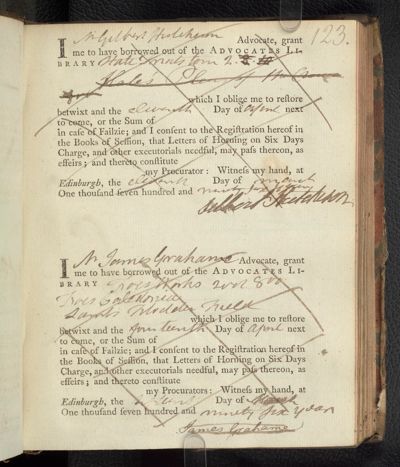 123.
I Mr Gilbert Hutcheson Advocate, grant
me to have borrowed out of the ADVOCATES LI-
BRARY State Trials tom 2.
Hales
which I oblige me to reſtore
betwixt and the eleventh Day of April next
to come, or the Sum of
in caſe of Failzie; and I conſent to the Regiſtration hereof in
the Books of Seſſion, that Letters of Horning on Six Days
Charge, and other executorials needful, may paſs thereon, as
effeirs; and thereto conſtitute
my Procurator: Witneſs my hand, at
Edinburgh, the eleventh Day of March
One thouſand ſeven hundred and ninety six years
Gilbert Hutcheson
I Mr James Grahame Advocate, grant
me to have borrowed out of the ADVOCATES LI-
BRARY Works 2 vol 8vo
Caledonia
Field
which I oblige me to reſtore
betwixt and the fourteenth Day of April next
to come, or the Sum of
in caſe of Failzie; and I conſent to the Regiſtration hereof in
the Books of Seſſion, that Letters of Horning on Six Days
Charge, and other executorials needful, may paſs thereon, as
effeirs; and thereto conſtitute
my Procurators: Witneſs my hand, at
Edinburgh, the Day of March
One thouſand ſeven hundred and ninety six years
James Grahame